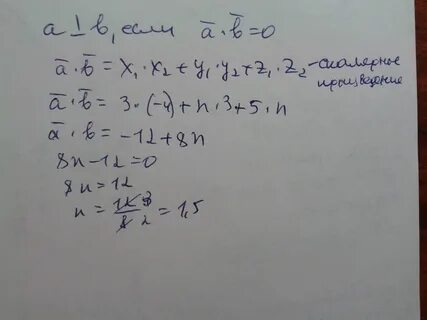 a ⊥ b, если a̅ · b̅ = 0
a̅ · b̅ = x₁ · x₂ + y₁ · y₂ + z₁ · z₂ - скалярное произведение
a̅ · b̅ = 3 · (-4) + n · 3 + 5 · n
a̅ · b̅ = -12 + 8n
8n - 12 = 0
8n = 12
n = 12 3 / 8 2 = 1,5